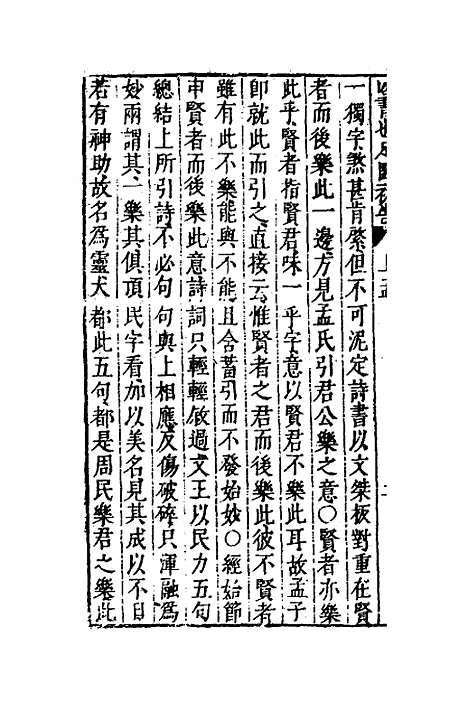 一獨字煞甚肯綮但不可泥定詩書以文桀板對重在賢
者而後樂此一邊方見孟氏引君公樂之意○賢者亦樂
此乎賢者指賢君味一乎字意以賢君不樂此耳故孟子
卽就此而引之直接云惟賢者之君而後樂此彼不賢者
雖有此不樂能與不能且含蓄引而不發始妙○經始節
申賢者而後樂此意詩詞只輕輕敘過文王以民力五句
總結上所引詩不必句句與上相應反傷破碎只渾融爲
妙兩謂其一樂其俱頂民字看加以美名見其成以不日
若有神助故名爲靈大都此五句都是周民樂君之樂此